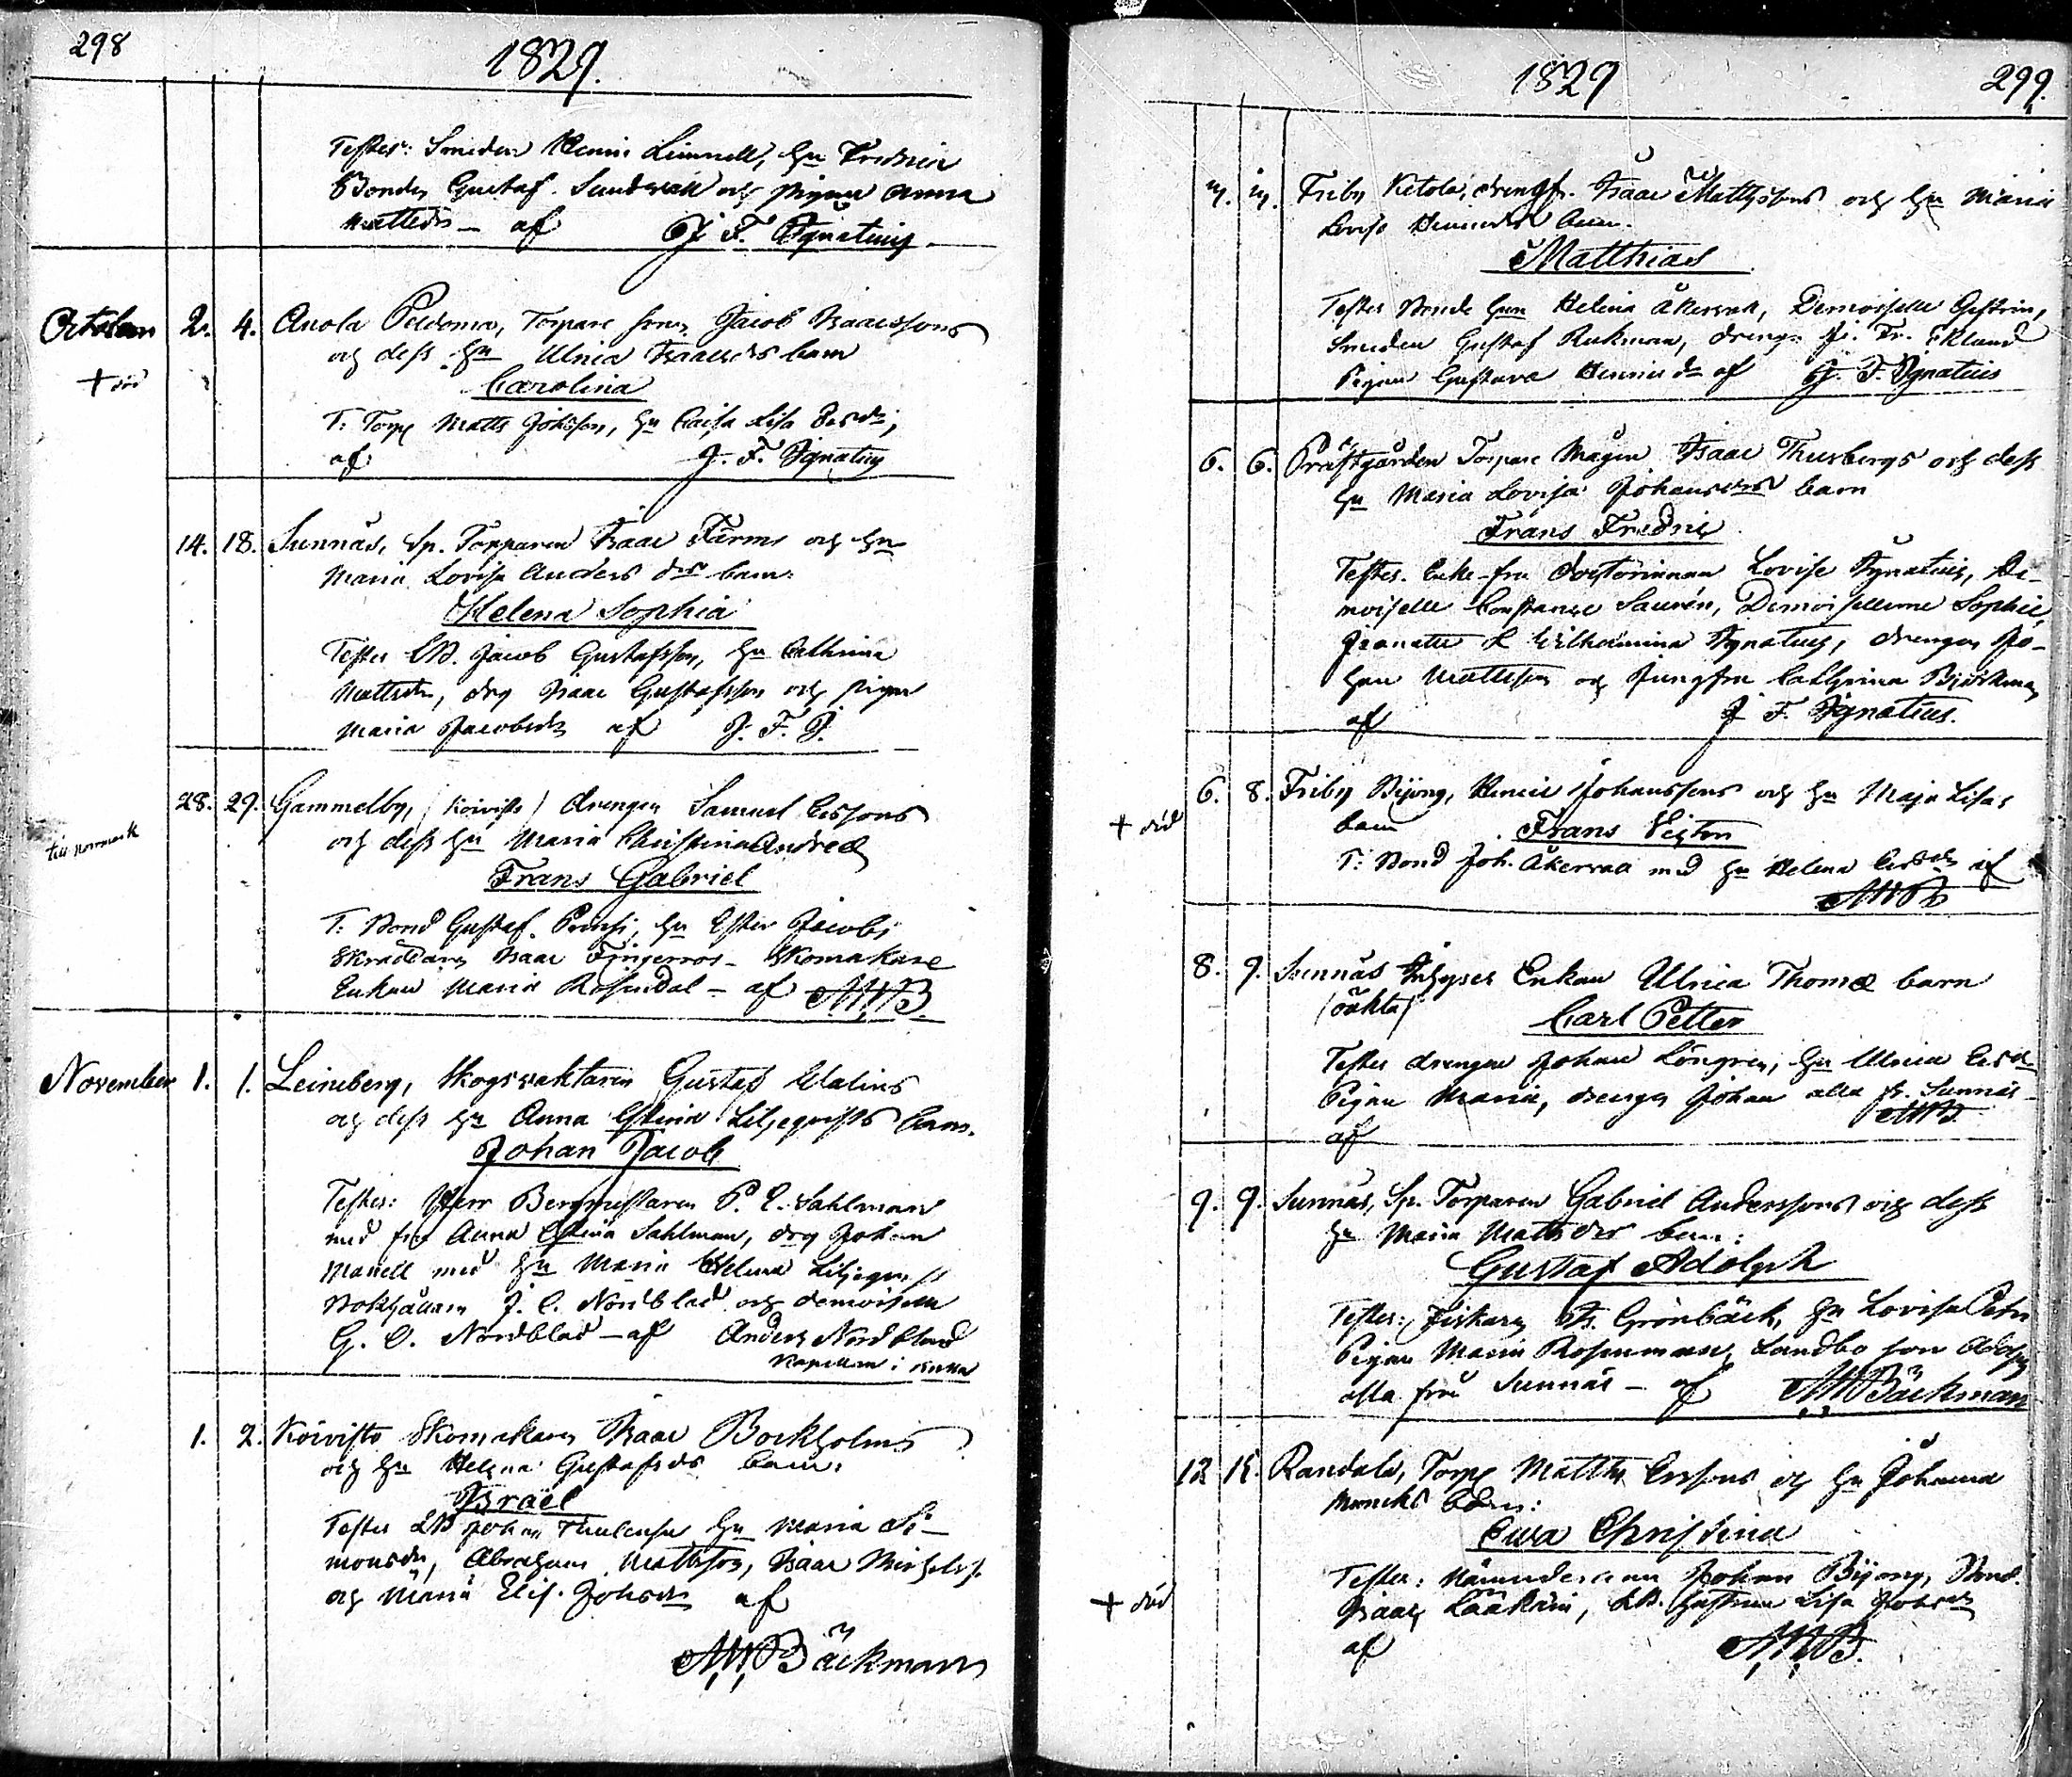 298
1829.
Testes: Smeden Henric Limnell, hu Fredrica
Bonden Gustaf Sundvall och pigan Anna
Mattsdr – af J. F. Ignatius.
October 2. 4. Anola Peldoma, Torpare sonen Jacob Isaacssons
och dess hu Ulrica Isaacsdrs barn
+ död
Carolina
T: Torp Matts Johsson, hu Caisa Lisa Ersdr,
af J. F. Ignatius
14. 18. Sunnäs, Sp. Torparen Isaac Färms och hu
Maria Lovisa Anders drs barn:
Helena Sophia
Testes LB. Jacob Gustafsson, hu Cathrina
Mattsdr, drg Isaac Gustafsson och pigan
Maria Jacobsdr af J. F. J.
28. 29. Gammelby, (Koivisto) drengen Samuel Erssons
och dess hu Maria Christina Andreæ
till Norrmark
Frans Gabriel
T. Bond Gustaf Prensi, hu Ester Jacobs
Skräddaren Isaac Fingerroos – Skomakare
Enkan Maria Rosendal – af AWB.
November 1. 1. Leineberg, Skogsvaktaren Gustaf Walins
och dess hu Anna Stina Liljeqvists barn.
Johan Jacob
Testes: Herr Bergmestaren P. E. Sahlman
med fru Anna Stina Sahlman, drg Johan
Manell med hu Maria Helena Liljeqvist
Bokhållaren J. C. Nordblad och demoiselle
G. O. Nordblad – af Anders Nordblad
Kapellan i
1. 2. Koivisto Skomakaren Isaac Bockholms
och hu Helena Gustafsdrs barn:
Israël
Testes LB Johan hu Maria Si-
monsdr, Abraham Mattsson, Isaac Michelss.
och Maria Elis. Johsdr af
AWBäckman
1829 299.
3. 3. Friby Ketola, drengen Isaac Mattssons och hu Maria
Lovisa Henricsdrs barn.
Matthias
Testes Bonde hun Helena Åkerman, Demoiselle Gestrin,
Smeden Gustaf Rukman, drengen Fr. Eklund
Pigan Gustava Henricsdr af J. F. Ignatius
6. 6. Prästgården Torpare Mågen Isaac Thurbergs och dess
hu Maria Lovisa Johansdrs barn
Frans Fredric
Testes. Enke-fru Doctorinnan Lovisa Ignatius, De-
moiselle Constance Saurén, Demoisellerne Sophie,
Jeanette & Wilhelmina Ignatius, drengen Jo-
han Mattsson och Jungfru Cathrina Björkman
af J F. Ignatius.
6. 8. Friby Bijong, Henric Johanssons och hu Maja Lisas
+ död
barn Frans Victor
T: Bond Joh. Åkerman med hu Helena Ersdr af
AWB
8. 9. Sunnäs Inhyses Enkan Ulrica Thomæ barn
(oäkta) Carl Petter
Testes drengen Johan Löngren, hu Ulrica Ersdr
Pigan Maria, drengen Johan alla fr. Sunnäs
af AWB.
9. 9. Sunnäs, Sp. Torparen Gabriel Anderssons och dess
hu Maria Matts drs barn:
Gustaf Adolph
Testes: Fiskaren Is. Grönbäck, hu Lovisa Petri
Pigan Maria Rosenman, Landbo son Adolph
alla från Sunnäs – af AWBäckman
12 15. Randala, Torp Matths Erssons och hu Johanna
Muncks barn:
Ewa Christina
Testes: Nämndeman Johan Bijong, Bond.
+ död
Isaac Lääkäri, LB. hustrun Lisa Johsdr
af AWB.